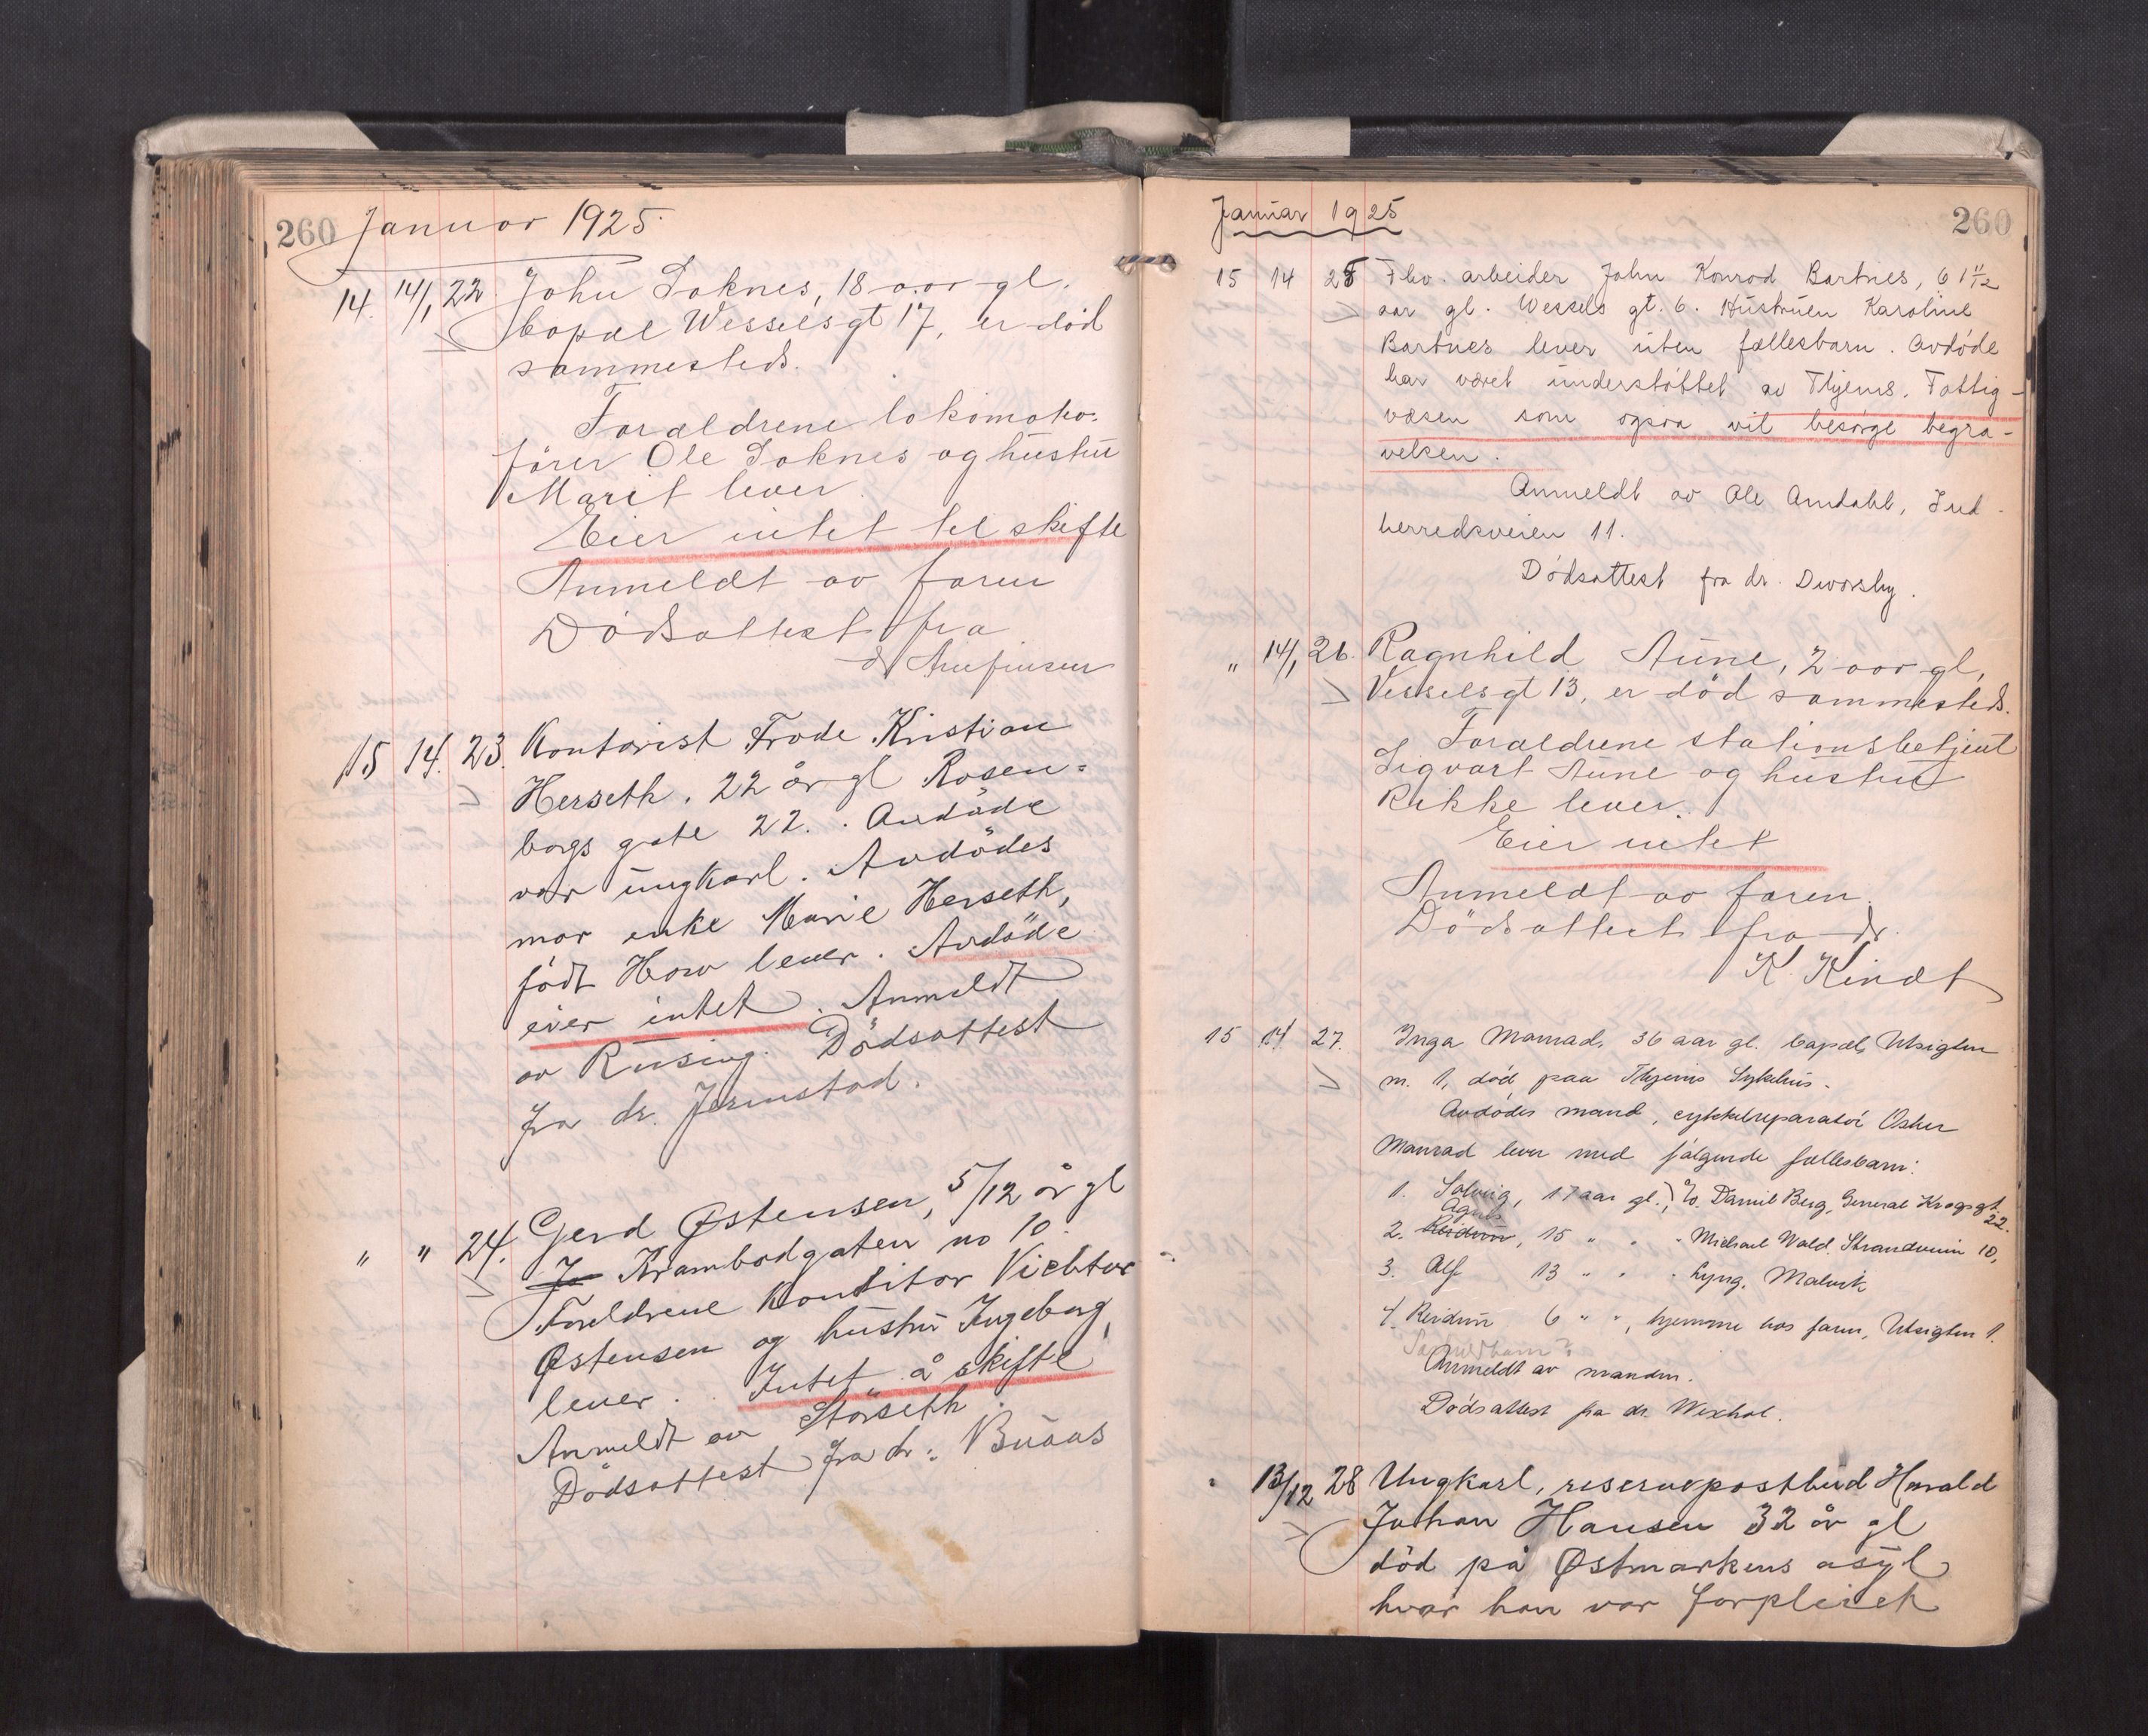 260 Januar 1925
14. 14/1 22. John Soknes, 18 aar gl.
bopæl Wesselsgt 17, er död
sammesteds.
Forældrene lokomotiv-
förer Ole Soknes og hustru
Marit lever.
Eier intet til skifte
Anmeldt av faren
Dödsattest fra
dr
15 14. 23. Kontorist Frode Kristian
Herseth. 22 år gl Rosen-
borgs gate 22. Avdöde
var ungkarl. Avdödes
mor enke Marie Herseth,
födt How lever. Avdöde
eier intet. Anmeldt
av Rusing. Dödsattest
fra dr. Jermstad.
" " 24. Gerd Østensen, 5/12 år gl
Krambodgaten no 10.
Foreldrene konditor Vicktor
Østensen og hustru Ingeborg
lever. Intet å skifte
Anmeldt av Störseth.
Dödsattest fra dr. Buaas
Januar 1925 260
15 14 25 Fhv. arbeider John Konrad Bartnes, 61 1/2
aar gl. Wessels gt. 6. Hustruen Karoline
Bartnes lever uten fællesbarn. Avdöde
har været understöttet av Thjems. Fattig-
væsen som ogsaa vil besörge begra-
velsen.
Anmeldt av Ole Amdahl, Ind-
herredsveien 11.
Dödsattest fra dr.
" 14/1 26. Ragnhild Aune, 2 aar gl,
Vesselsgt 13, er död sammesteds.
Forældrene stationsbetjent
Sigvart Aune og hustru
Rikke lever.
Eier intet
Anmeldt av faren.
Dödsattest fra dr.
K. Kindt
15 14 27. Inga Manrad, 36 aar gl. bopæl Utsigten
n. 1, död paa Thjems Sykehus.
Avdödes mand, cykkelreparatör Osker
Manrad lever med fölgende fællesbarn:
1. Solveig, 17 aar gl., c/o. Daniel Berg, General Krogsgt.
22.
Agnes
2. Reidun, 15 " " " Michael Wold, Strandveien 10,
3. Alf 13 " " " Lyng, Malvik
4. Reidun 6 " ", hjemme hos faren, Utsigten 1.
Anmeldt av manden.
Dödsattest fra dr. Wexhal.
" 13/12 28 Ungkarl, reservepostbud Harald
Johan Hansen 32 år gl
död på Østmarkens asyl
hvor han var forpleiet